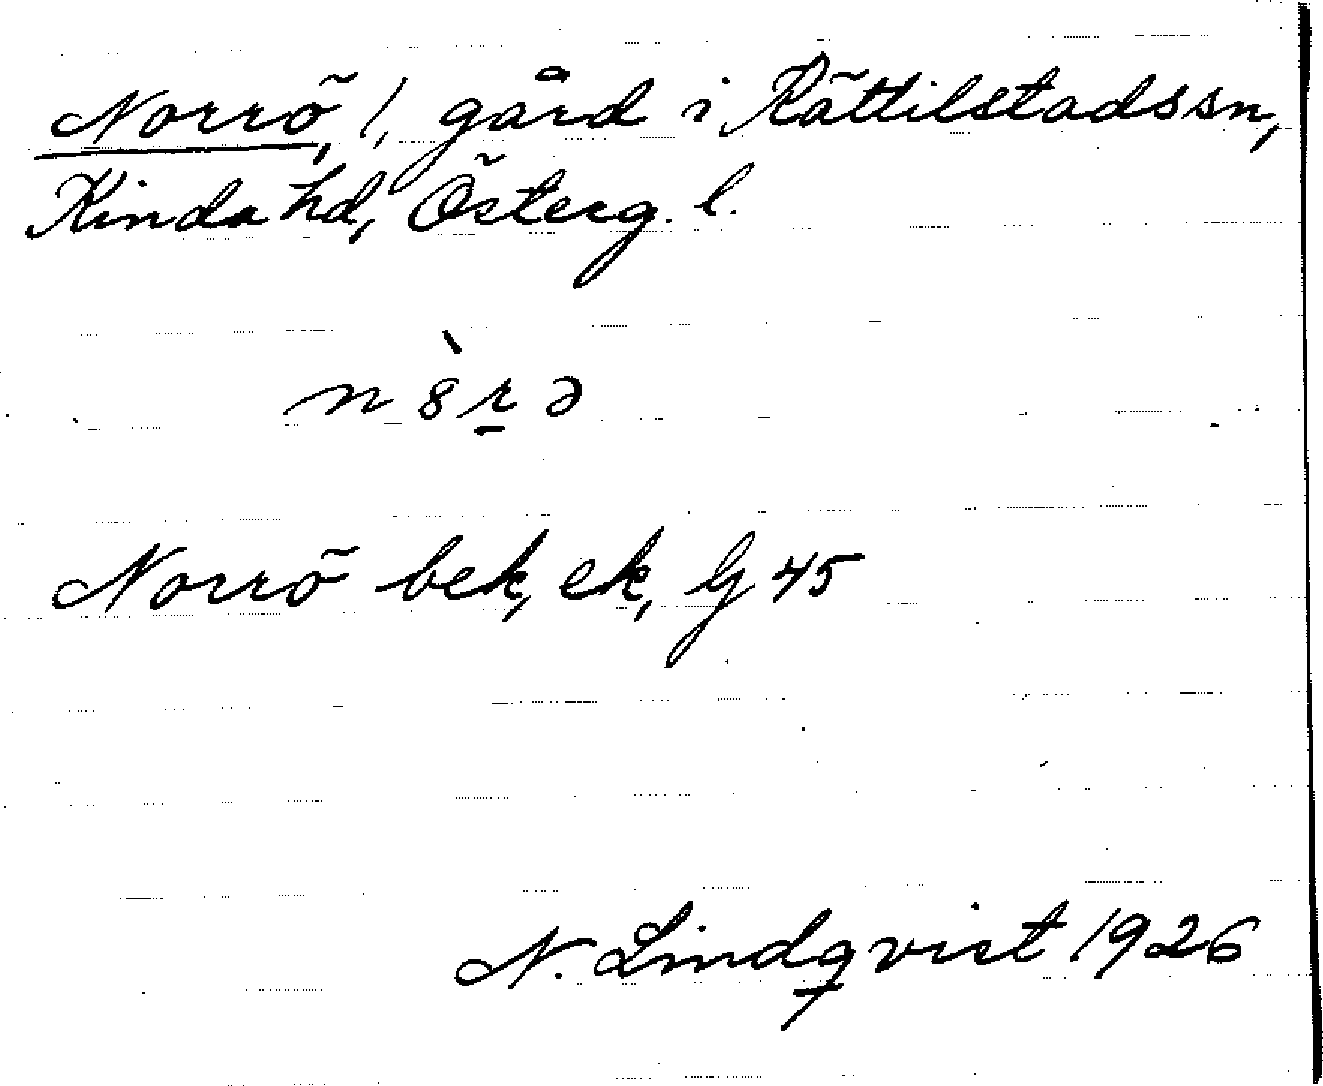 Norrö, 1, gård i Kättilstads sn,
Kinda hd, Österg. l.
n 8̀ r̲ ə
Norrö bek, ek, G 45
N. Lindqvist 1926